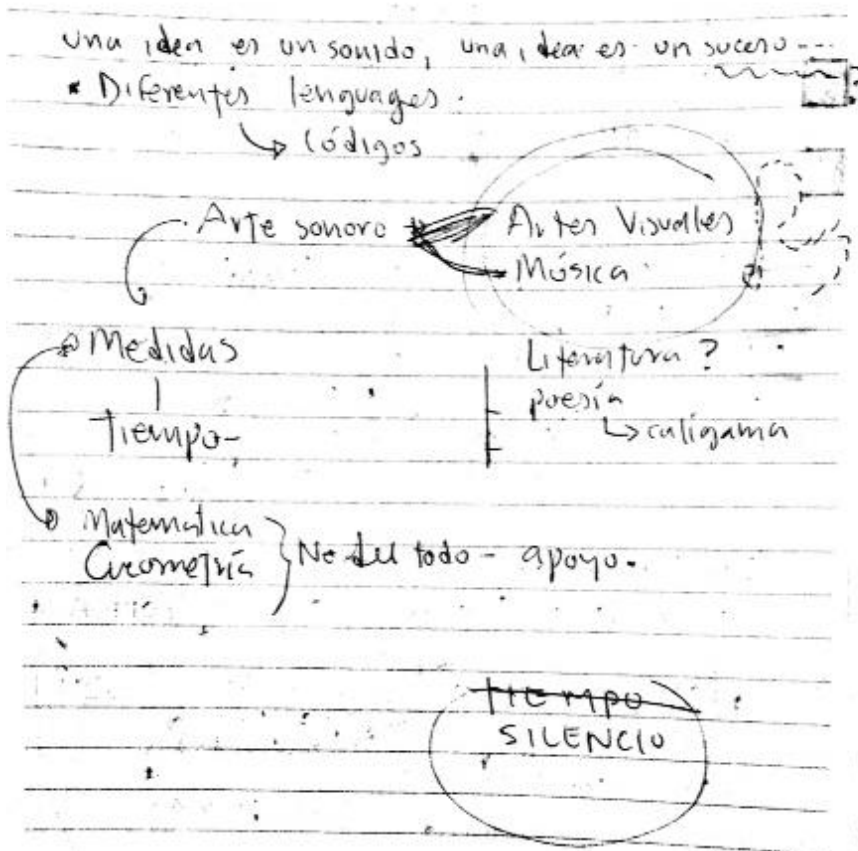 una idea es un sonido, una idea es un suceso ---
* Diferentes lenguages.
↳ Códigos
Arte sonoro
Artes Visuales
Música
Medidas
tiempo
Literatura ?
poesía
↳ caligama
Matemática
Geometría
No del todo - apoyo.
TIEMPO
SILENCIO